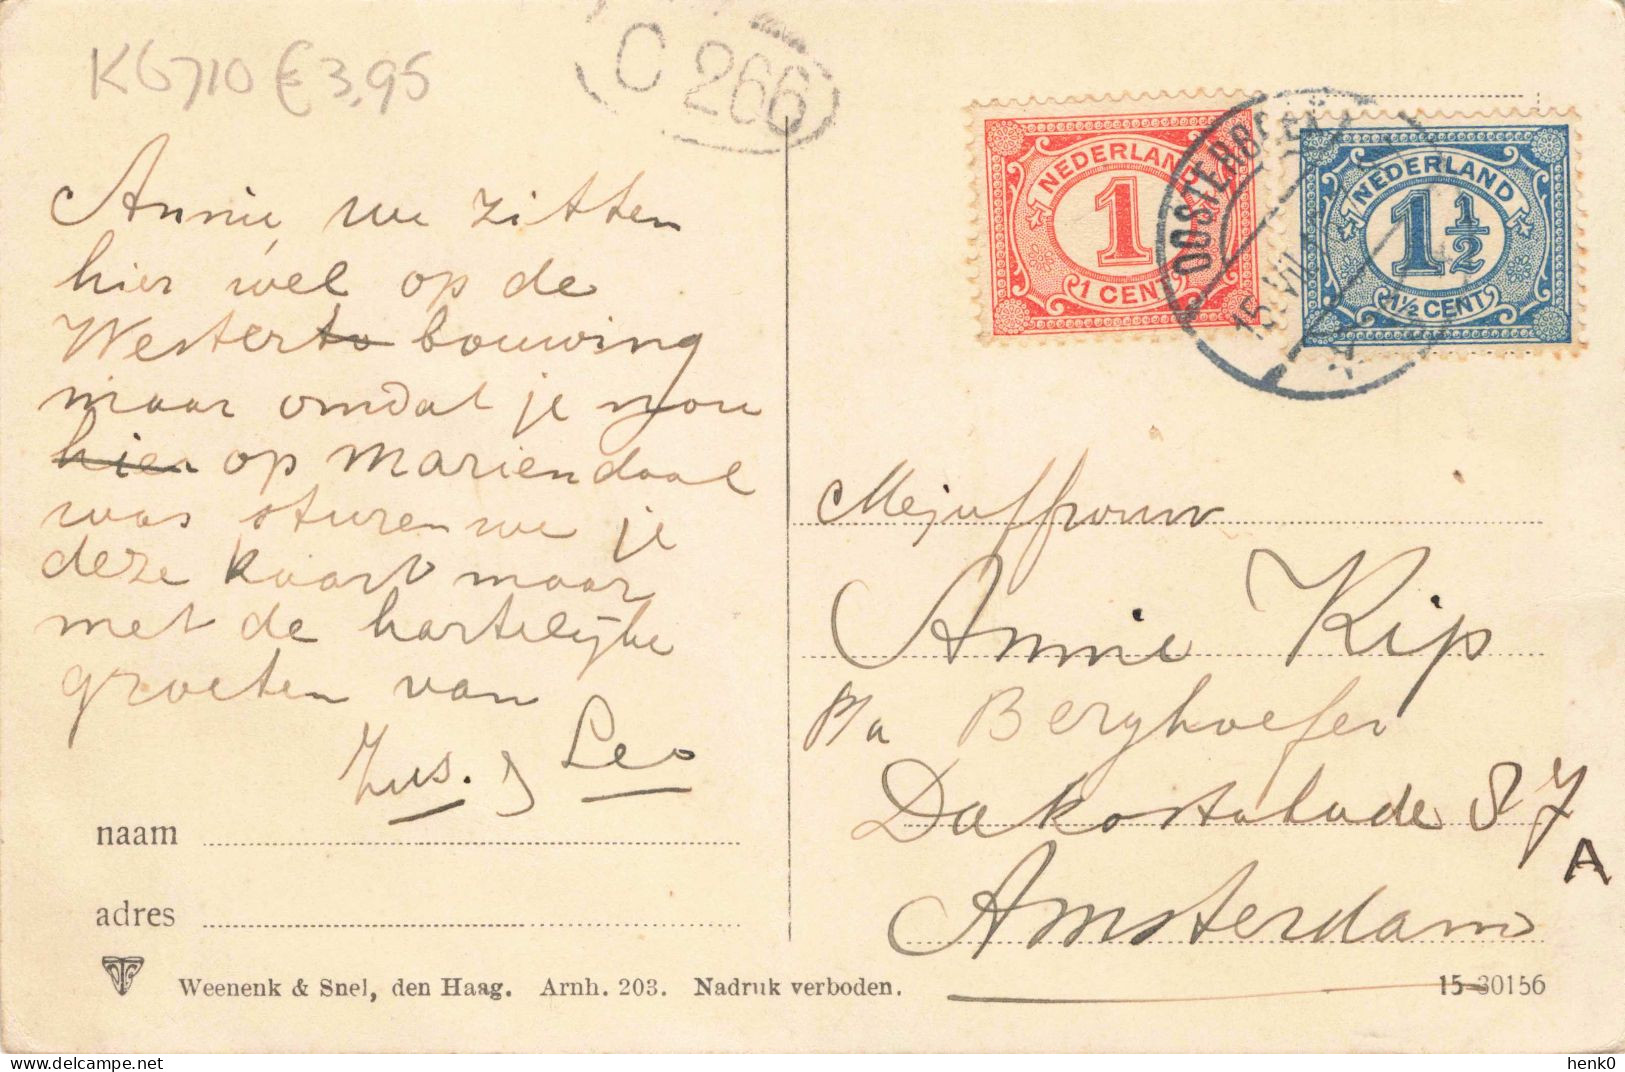 K6710 € 3,95
C 266
Annie, we zitten
hier wel op de
Westerto bouwing
maar omdat je nou
hier op Mariendaal
was sturen we je
deze kaart maar
met de hartelijke
groeten van
Zus. Leo
naam
adres
Weenenk & Snel, den Haag. Arnh. 203. Nadruk verboden.
NEDERLAND
1
1 CENT
NEDERLAND
1 1/2
1 1/2 CENT
OOSTERBEEK
15 VII
Mejuffrouw
Annie Kip
p/a Berghoefer
Da Kostakade 87
A
Amsterdam
15-30156
henk0